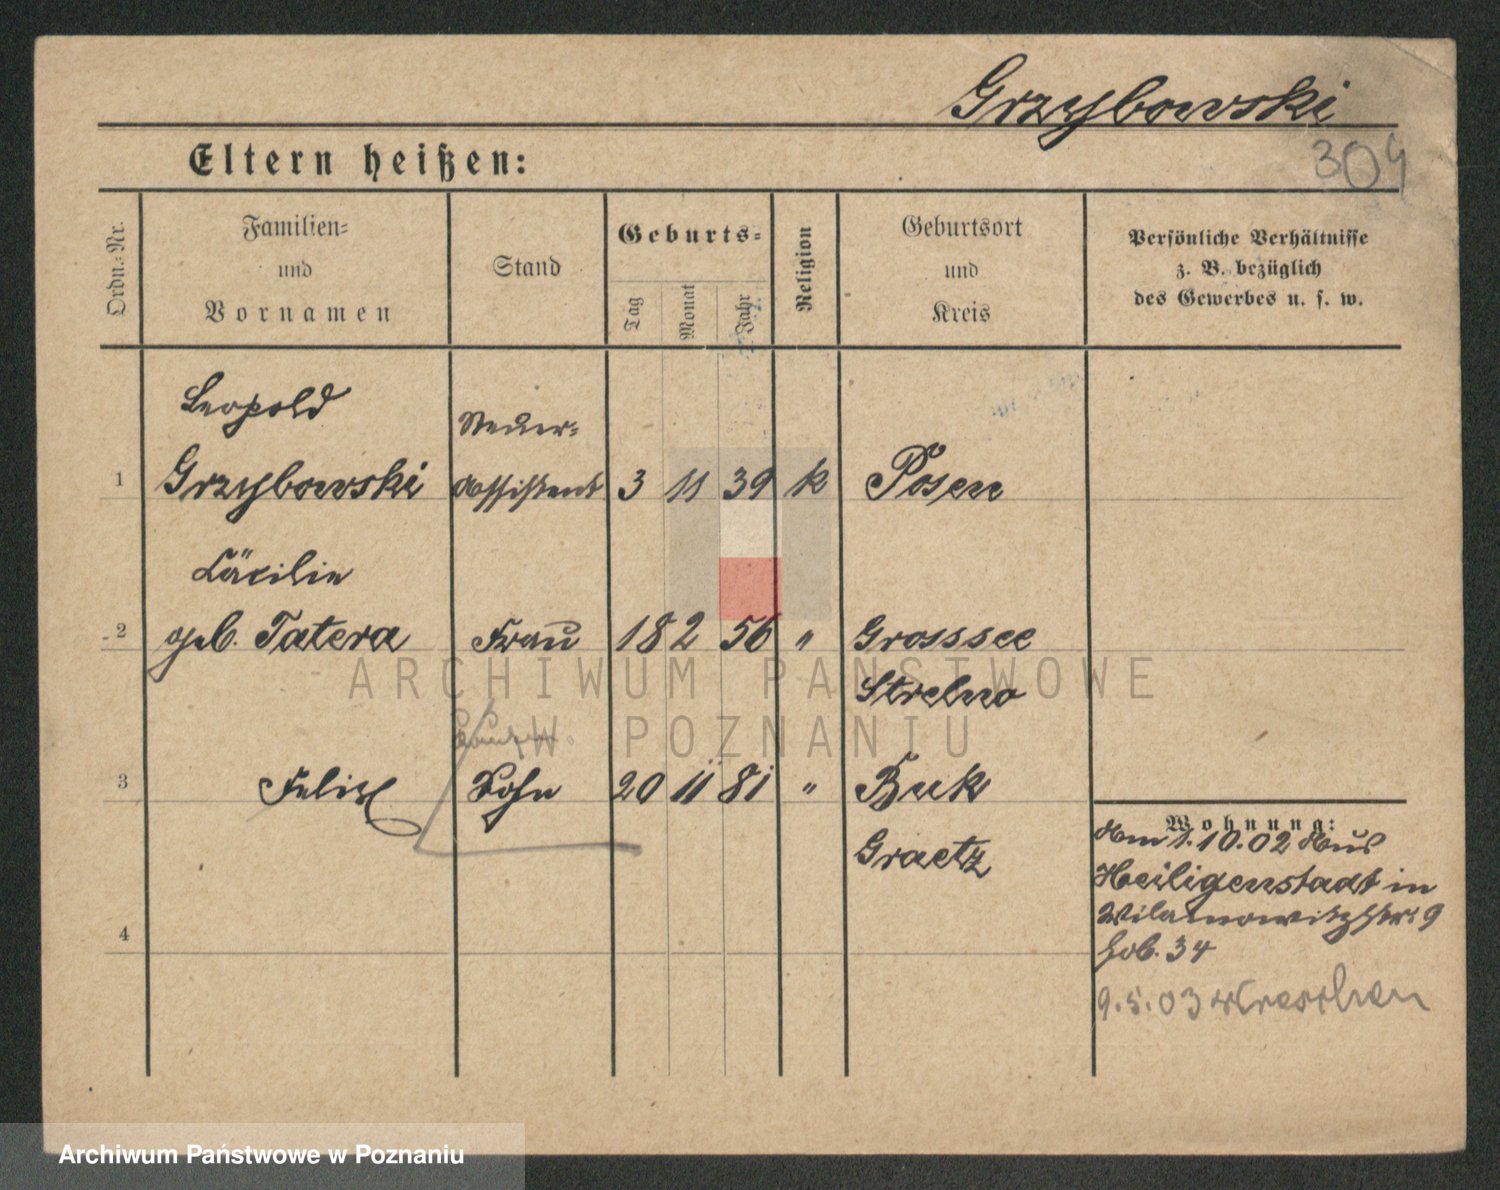 Grzybowski
304
Eltern heißen:
Ordn.-Nr.
Familien-
und
Vornamen
Stand
Geburts-
Tag
Monat
Jahr
Religion
Geburtsort
und
Kreis
Persönliche Verhältnisse
z. B. bezüglich
des Gewerbes u. s. w.
Leopold
Steuer-
1 Grzybowski Assistent 3 11 39 k Posen
Cäcilie
2 geb. Tatera Frau 18 2 56 " Grosssee
Strelno
3 Felix Sohn 20 11 81 " Buk
Graetz
4
Wohnung:
Am 1.10.02 Aus
Heiligenstadt in
Wilamowitzstr. 9
Hob. 34
9.5.03 Wreschen
ARCHIWUM PAŃSTWOWE
W POZNANIU
Archiwum Państwowe w Poznaniu